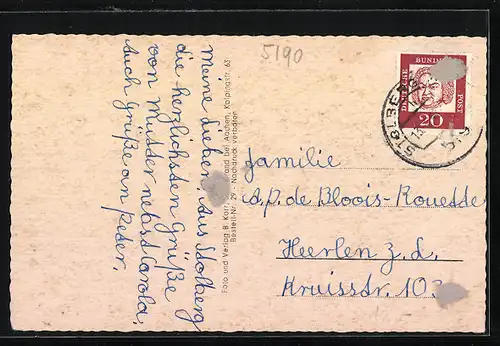 Meine Lieben! Aus Stolberg
die herzlichsten Grüße
von Mutter nebst Carola,
auch grüße an Peter.
Foto und Verlag B. Korr, and bei Aachen, Kolpingstr. 63
Bestell-Nr. 29 - Nachdruck verboten
5190
DEUTSCHE
BUNDES
POST
20
STOLBERG
Familie
A.p. de Bloois-Rouedde
Heerlen z. L.
Kruisstr. 103